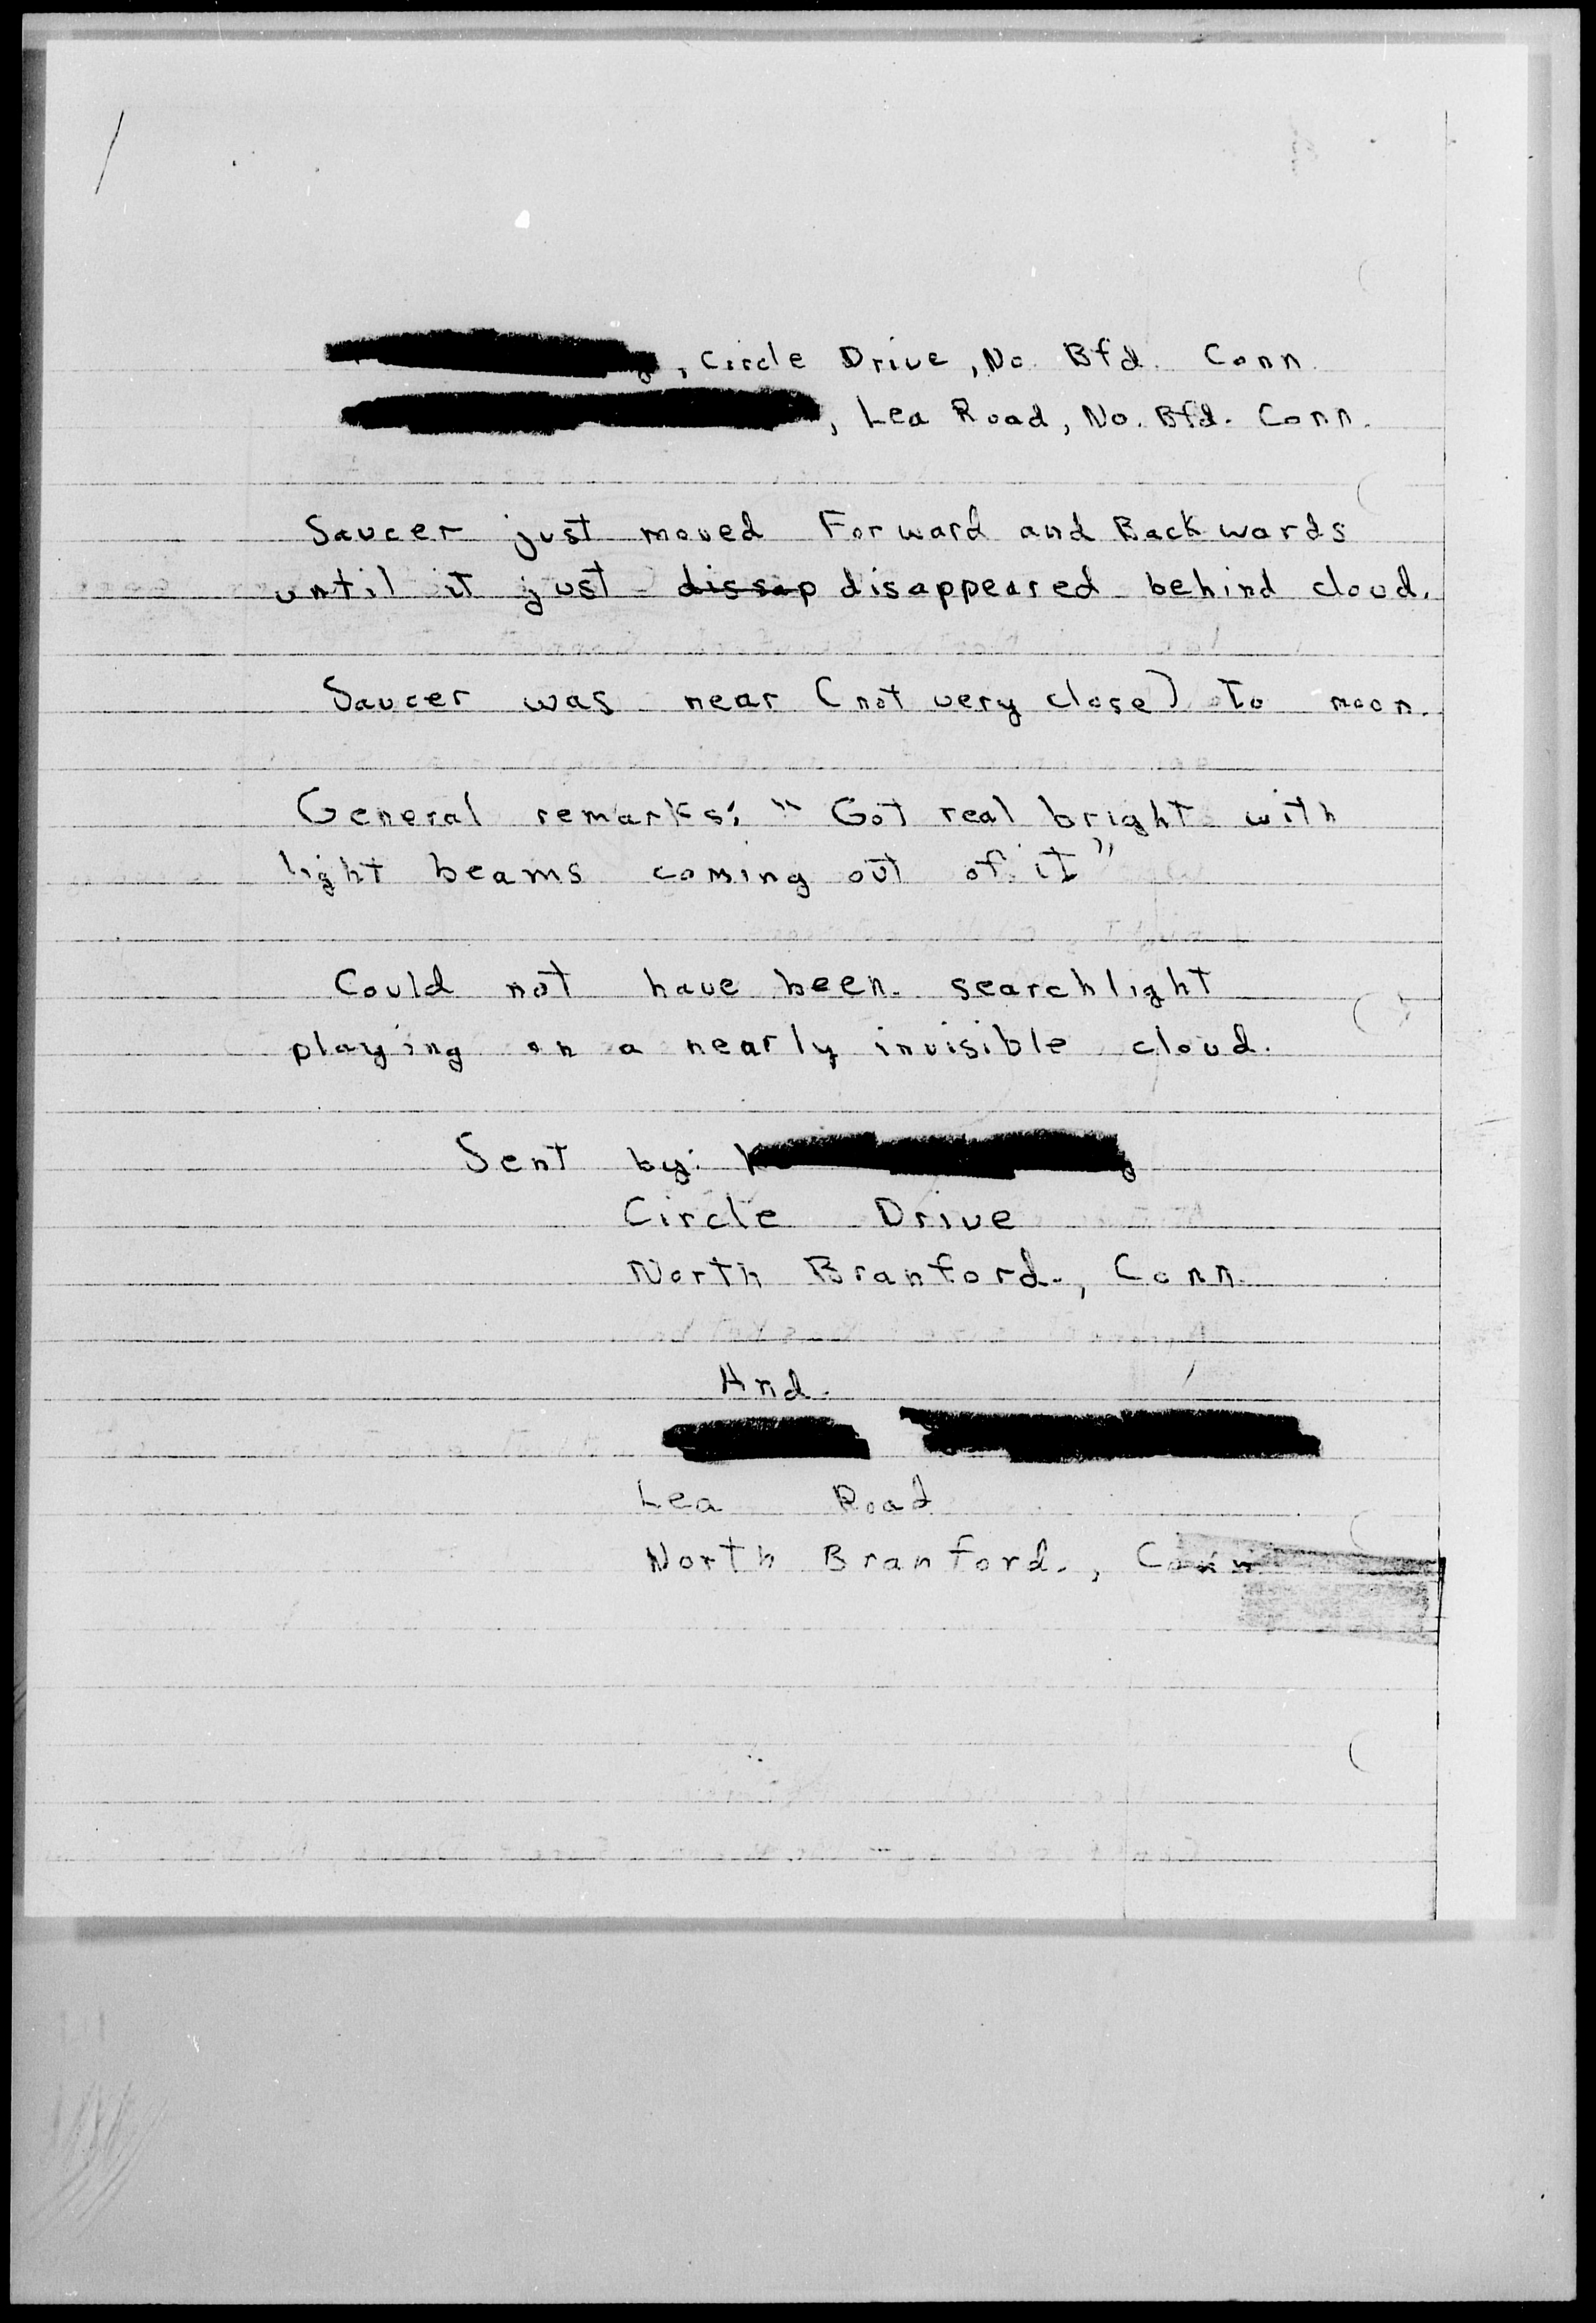 , Circle Drive, No. Bfd. Conn.
, Lea Road, No. Bfd. Conn.
Saucer just moved Forward and Backwards
until it just dissap disappeared behind cloud.
Saucer was near (not very close) to moon.
General remarks: "Got real bright with
light beams coming out of it"
Could not have been searchlight
playing on a nearly invisible cloud.
Sent by:
Circle Drive
North Branford., Conn.
And.
Lea Road
North Branford., Conn